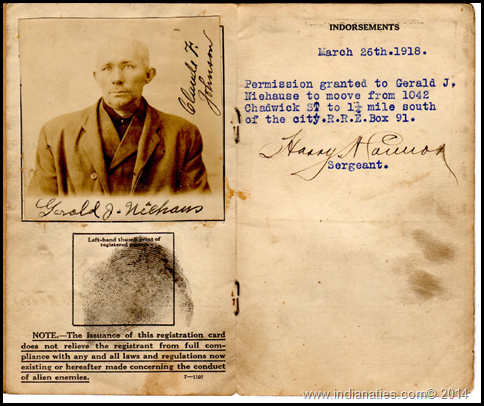 Claude F.
Johnson
Gerald J. Niehaus
Left-hand thumb print of
registered person
NOTE.—The issuance of this registration card
does not relieve the registrant from full com-
pliance with any and all laws and regulations now
existing or hereafter made concerning the conduct
of alien enemies.
7—1107
INDORSEMENTS
March 26th.1918.
Permission granted to Gerald J.
Niehause to moove from 1042
Chadwick St to 1½ mile south
of the city.R.R.E.Box 91.
Harry
Sergeant.
www.indianaties.com© 2014